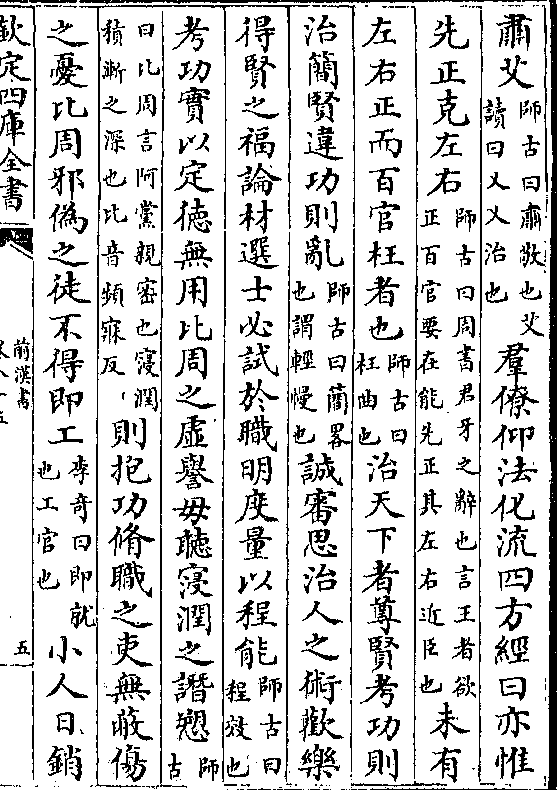 肅艾師古曰肅敬也艾讀曰乂乂治也羣僚仰法化流四方經曰亦惟
先正克左右師古曰周書君牙之辭也言王者欲正百官要在能先正其左右近臣也未有
左右正而百官枉者也師古曰枉曲也治天下者尊賢考功則
治簡賢違功則亂師古曰蕳畧也謂輕慢也誠審思治人之術歡樂
得賢之福論材選士必試於職明度量以程能師古曰程效也
考功實以定徳無用比周之虛譽毋聽寖潤之譖愬師古
曰比周言阿黨親密也寖潤積漸之深也比音頻寐反則抱功脩職之吏無蔽傷
之憂比周邪偽之徒不得即工李奇曰即就也工官也小人日銷
欽定四庫全書
前漢書
五